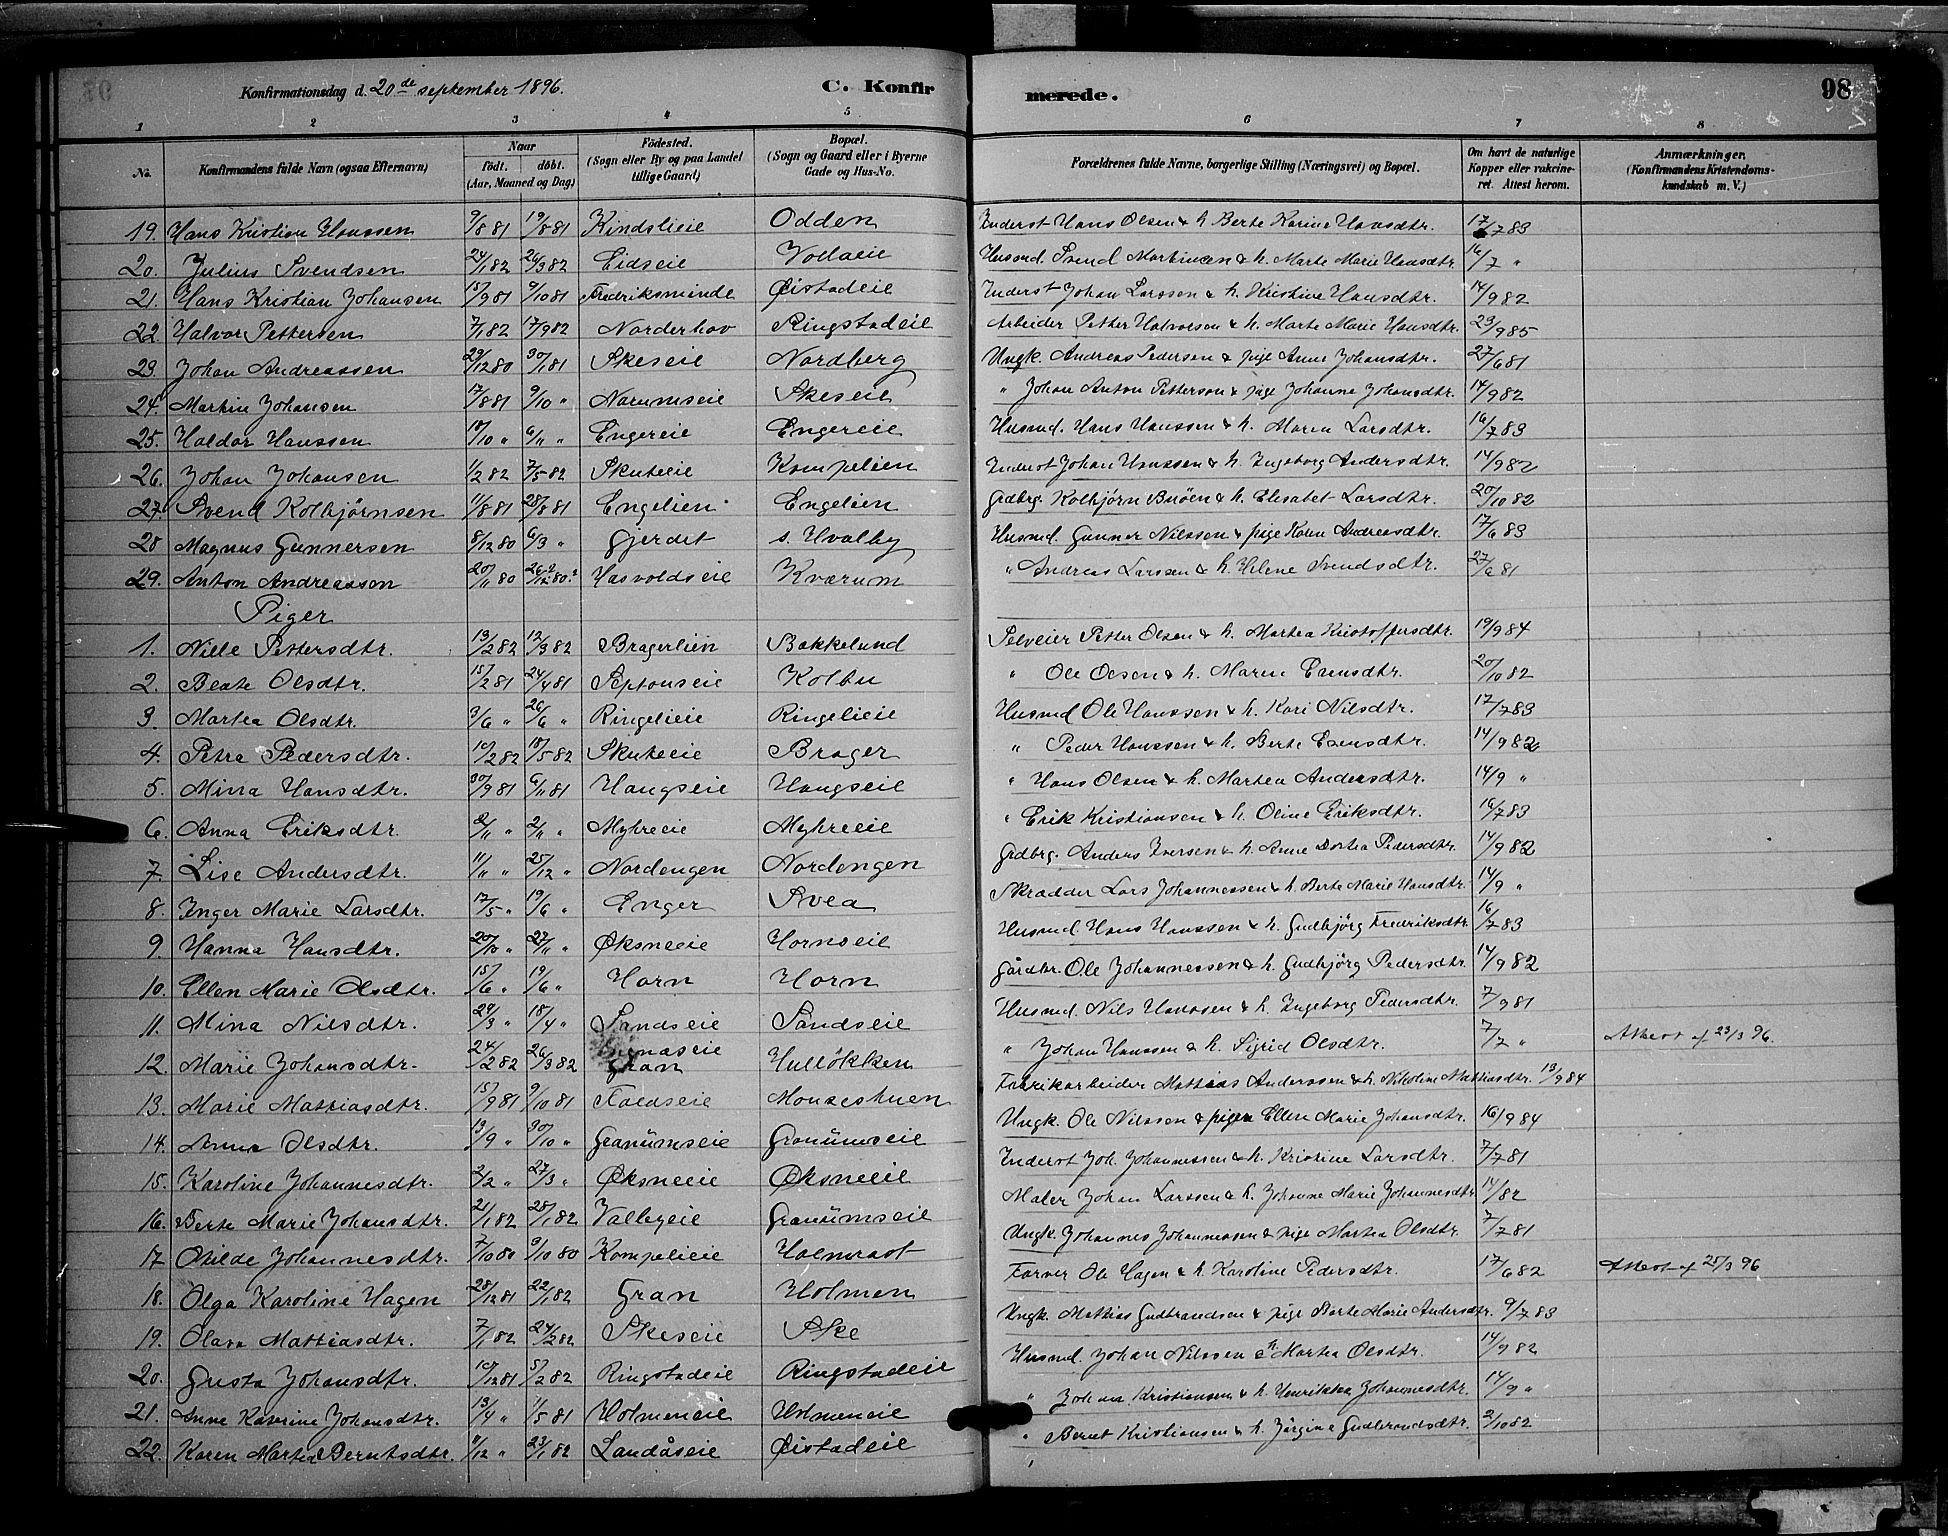 Konfirmationsdag d. 20de september 1896.
C. Konfirmerede.
98
1 2 3 4 5 6 7 8
No. Konfirmandens fulde Navn (ogsaa Efternavn) Naar født. døbt. (Aar, Maaned og Dag) Fødested. (Sogn eller By og paa Landet tillige Gaard) Bopæl. (Sogn og Gaard eller i Byerne Gade og Hus-No. Forældrenes fulde Navne, borgerlige Stilling (Næringsvei) og Bopæl. Om havt de naturlige Kopper eller vakcineret. Attest herom. Anmærkninger. (Konfirmandens Kristendomskundskab m. V.)
19. Hans Kristian Hanssen 9/8 81 19/8 81 Kindslieie Odden Inderst Hans Olsen & h. Berte Karine Hansdtr. 17/7 83
20. Julius Svendsen 24/1 82 26/3 82 Eidseie Husmd. Svend Martinsen & h. Marte Marie Hansdtr. 16/7 "
21. Hans Kristian Johansen 15/9 81 9/10 81 Fredriksminde Øistadeie Inderst Johan Larssen & h. Kristine Hansdtr. 14/9 82
22. Halvor Pettersen 7/1 82 17/9 82 Norderhov Ringstadeie Arbeider Petter Halvorsen & h. Marte Marie Hansdtr. 23/9 85
23. Johan Andreassen 29/12 80 30/1 81 Skeseie Nordberg Ungk. Andreas Pedersen & pige Anne Johansdtr. 27/6 81
24. Martin Johansen 17/8 81 9/10 " Narumseie Skeseie " Johan Anton Petterson & pige Johanne Johansdtr. 14/9 82
25. Haldor Hanssen 18/10 " 6/11 " Engereie Engereie Husmd. Hans Hanssen & h. Maren Larsdtr. 16/7 83
26. Johan Johansen 1/2 82 7/5 82 Skuteeie Kompelien Inderst Johan Hanssen & h. Ingeborg Andersdtr. 14/9 82
27. Svend Kolbjörnsen 11/8 81 28/8 81 Engelien Engelien Grdbrg. Kolbjörn Buöen & h. Elisabet Larsdtr. 20/10 82
28 Magnus Gunnersen 8/12 80 6/3 " Gjerdet s. Hvalby Husmd. Gunner Nilssen & pige Karen Andreasdtr. 17/6 83
29. Anton Andreassen 20/11 80 26/12 80? Hasvoldseie Kværum " Andreas Larssen & h. Helene Svendsdtr. 27/6 81
Piger
1. Nille Pettersdtr. 13/2 82 12/3 82 Bragerlien Bakkelund Selveier Petter Olsen & h. Martea Kristoffersdtr. 19/9 84
2. Beate Olsdtr. 15/2 81 24/4 81 Septonseie Kolbu " Ole Olsen & h. Maren Evensdtr. 20/10 82
3. Martea Olsdtr. 3/6 " 26/6 " Ringelieie Ringelieie Husmd Ole Hanssen & h. Kari Nilsdtr. 17/7 83
4. Petra Pedersdtr. 10/2 82 18/5 82 Skuteeie Brager " Peder Hanssen & h. Berte Evensdtr. 14/9 82
5. Mina Hansdtr. 30/9 81 6/11 81 Haugseie Haugseie " Hans Olsen & h. Martea Andersdtr. 14/9 "
6. Anna Eriksdtr. 2/11 " 2/11 " Myhreeie Myhreeie " Erik Kristiansen & h. Oline Eriksdtr. 16/7 83
7. Lise Andersdtr. 11/11 " 25/12 " Nordengen Nordengen Grdbrg. Anders Iversen & h. Anne Dortea Pedersdtr. 14/9 82
8. Inger Marie Larsdtr. 17/5 " 19/6 " Enger Svea Skrædder Lars Johannessen & h. Berte Marie Hansdtr. 14/9 "
9. Hanna Hansdtr. 20/10 " 27/11 " Øksneeie Hornseie Husmd Hans Hanssen & h. Gudbjörg Fredriksdtr. 16/7 83
10. Ellen Marie Olsdtr. 15/6 " 19/6 " Horn Horn Gårdbr. Ole Johannessen & h. Gudbjörg Pedersdtr. 14/9 82
11. Mina Nilsdtr. 29/3 " 18/4 " Sandseie Sandseie Husmd. Nils Hanssen & h. Ingeborg Pedersdtr. 7/9 81
12. Marie Johansdtr. 24/2 82 26/3 82 Gran Hullökken " Johan Hanssen & h. Sigrid Olsdtr. 7/7 " Attest af 23/3 96.
13. Marie Mattiasdtr. 15/9 81 9/10 81 Faldseie Fabrikarbeider Mattias Anderssen & h. Nikoline Mattiasdtr. 19/9 84
14. Anna Olsdtr. 13/9 " 30/10 " Granumseie Granumseie Ungk. Ole Nilssen & pigen Ellen Marie Johansdtr. 16/9 84
15. Karoline Johannesdtr. 2/2 " 27/3 " Øksneeie Øksneeie Inderst Joh. Johannessen & h. Kristine Larsdtr. 7/7 81
16. Berte Marie Johansdtr. 21/1 82 28/1 82 Vallyeie Granumseie Maler Johan Larssen & h. Johanne Marie Johannesdtr 14/82
17 Otilde Johannesdtr. 7/10 80 9/10 80 Kompelieie Holmrast Ungk. Johannes Johannessen & pige Martea Olsdtr. 7/7 81
18. Olga Karoline Hagen 28/12 81 22/1 82 Gran Holmen Farver Ole Hagen & h. Karoline Pedersdtr. 17/6 82 Attest af 25/3 96
19. Olava Mattiasdtr. 7/1 82 24/2 82 Skeseie Ske Ungk. Mattias Gudbrandsen & pige Berte Marie Andersdtr. 9/7 83
20. Gusta Johansdtr. 10/12 81 5/2 82 Ringstadeie Ringstadeie Husmd. Johan Nilssen & h Martea Olsdtr. 14/9 82
21. Anne Katerine Johansdtr. 13/4 " 1/5 81 Holmeneie Holmeneie " Johan Kristiansen & h. Henrikka Johannesdtr. 14/9 "
22. Karen Martea Berntsdtr. 9/12 " 23/1 82 Landåseie Øistadeie " Bernt Kristiansen & h. Jörgine Gudbrandsdtr. 2/10 82